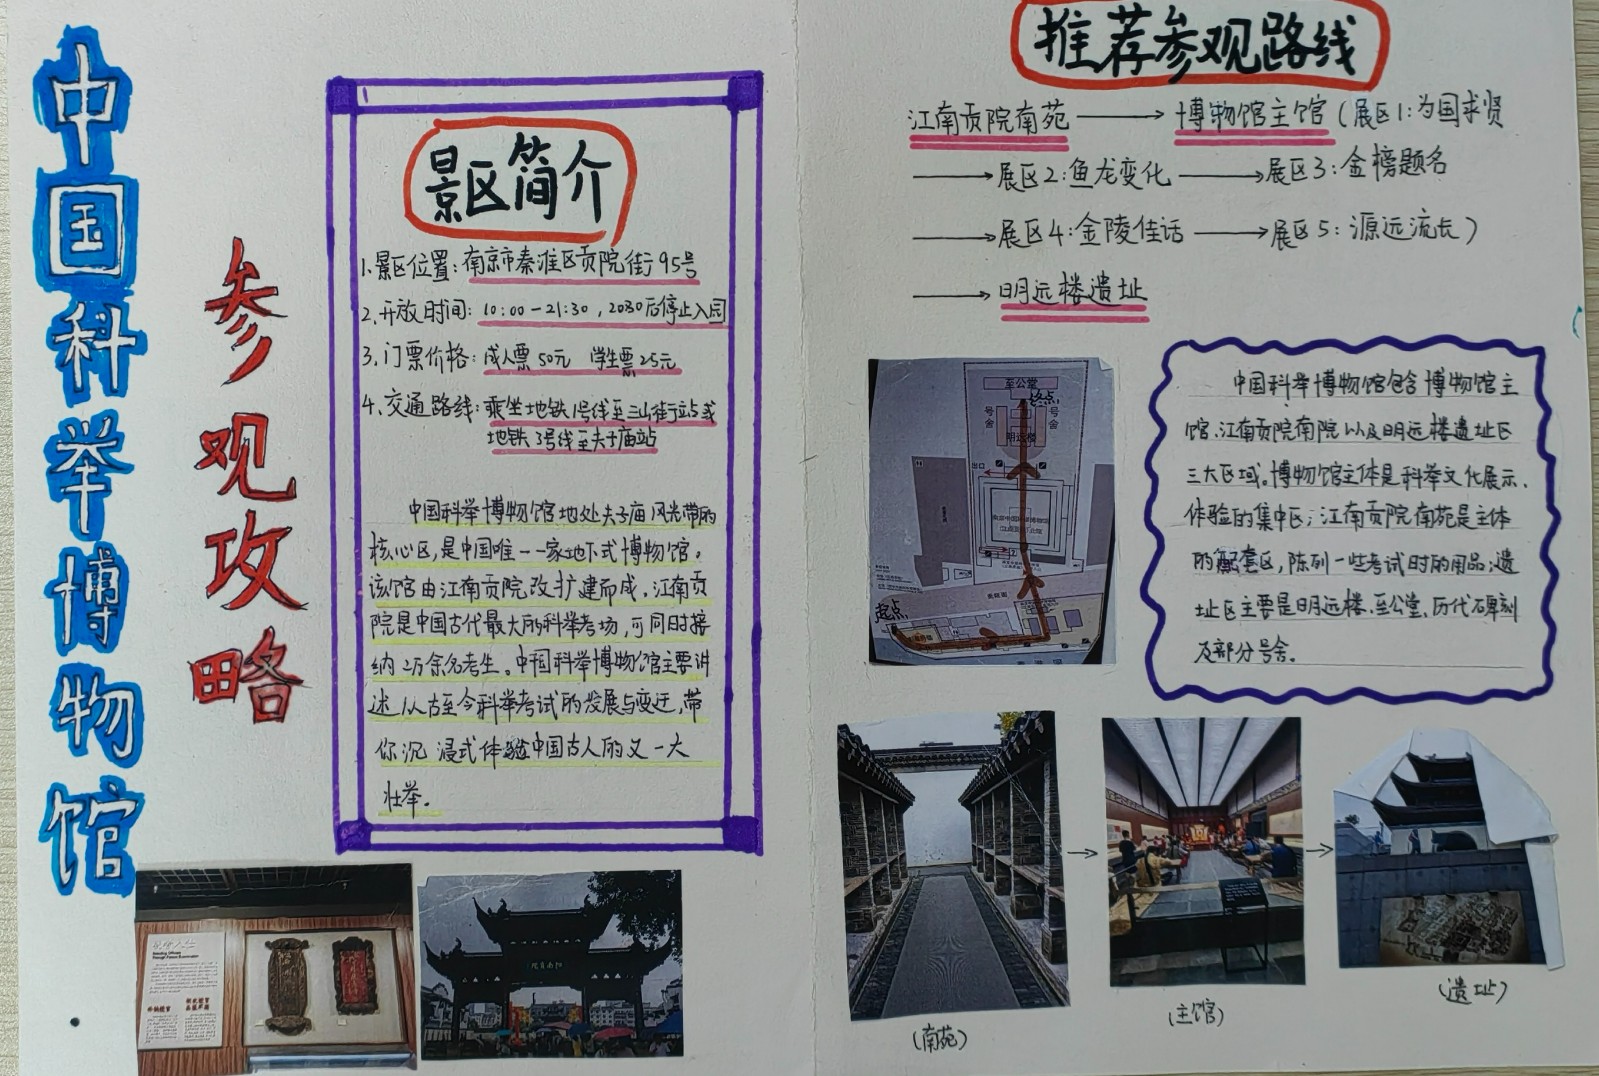 中国科举博物馆
参观攻略
景区简介
1.景区位置:南京市秦淮区贡院街95号
2.开放时间:10:00-21:30,2030后停止入园
3.门票价格:成人票50元 学生票25元
4.交通路线:乘坐地铁1号线至三山街站或
地铁3号线至夫子庙站
中国科举博物馆地处夫子庙风光带的
核心区,是中国唯一一家地下式博物馆。
该馆由江南贡院改扩建而成。江南贡
院是中国古代最大的科举考场,可同时接
纳2万余名考生。中国科举博物馆主要讲
述从古至今科举考试的发展与变迁,带
你沉浸式体验中国古人的又一大
壮举。
推荐参观路线
江南贡院南苑→博物馆主馆(展区1:为国求贤
→展区2:鱼龙变化→展区3:金榜题名
→展区4:金陵佳话→展区5:源远流长)
→明远楼遗址
至公堂
终点
号舍
号舍
明远楼
出口
起点
中国科举博物馆包含博物馆主
馆、江南贡院南院以及明远楼遗址区
三大区域。博物馆主体是科举文化展示、
体验的集中区;江南贡院南苑是主体
的配套区,陈列一些考试时的用品;遗
址区主要是明远楼、至公堂、历代碑刻
及部分号舍。
院贡南江
(南苑)
→
(主馆)
→
(遗址)